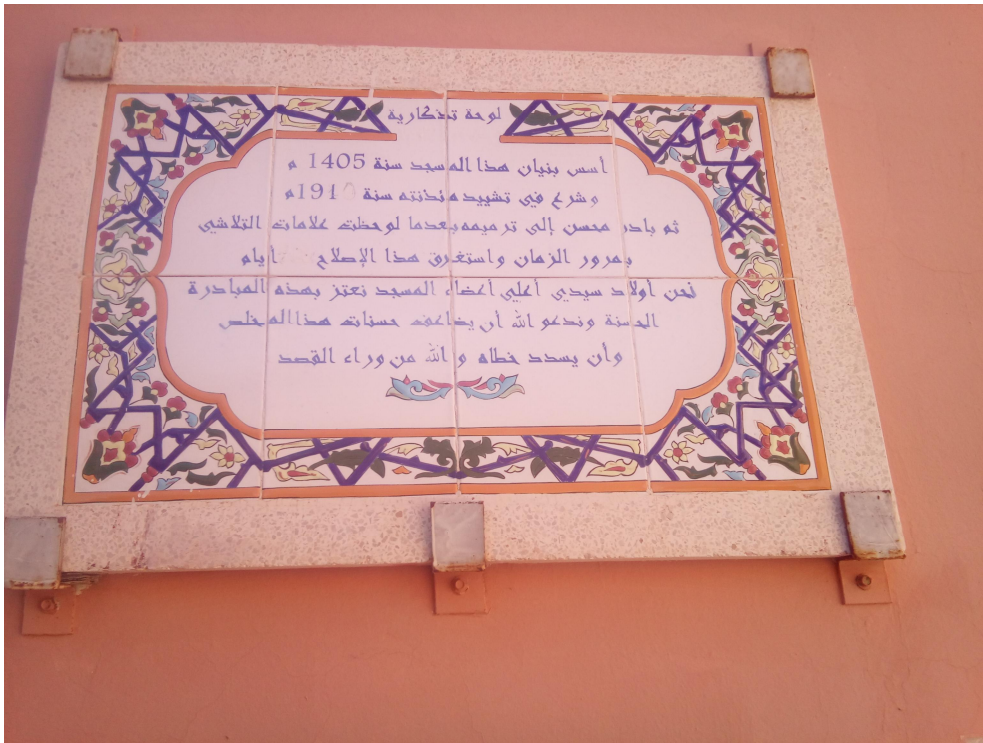 لوحة تذكارية
أسس بنيان هذا المسجد سنة 1405 م
وشرع في تشييد مئذنته سنة م
ثم بادر محسن إلى ترميمه بعدما لوحظت علامات التلاشي
بمرور الزمان واستغرق هذا الإصلاح أيام
نحن أولاد سيدي أعلي أعضاء المسجد نعتز بهذه المبادرة
الحسنة وندعو الله أن يضاعف حسنات هذا المخلص
وأن يسدد خطاه و الله من وراء القصد